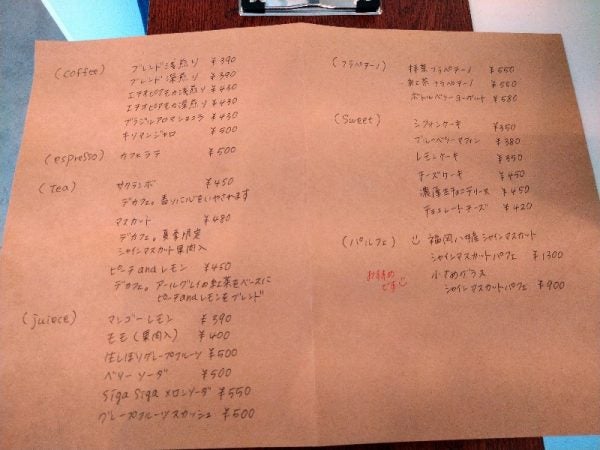 (coffee)
ブレンド浅煎り ¥390
ブレンド深煎り ¥390
エチオピアモカ浅煎り ¥430
エチオピアモカ深煎り ¥430
ブラジルアロマショコラ ¥430
キリマンジャロ ¥500
(espresso) カフェラテ ¥500
(Tea) サクランボ ¥450
デカフェ。香りに心をいやされます
マスカット ¥480
デカフェ。夏季限定
シャインマスカット果肉入
ピーチandレモン ¥450
デカフェ。アールグレイの紅茶をベースに
ピーチandレモンをブレンド
(juiece) マンゴーレモン ¥390
モモ(果肉入) ¥400
生しぼりグレープフルーツ ¥500
ベリーソーダ ¥500
Siga Siga メロンソーダ ¥550
グレープフルーツスカッシュ ¥500
(フラペチーノ) 抹茶フラペチーノ ¥550
紅茶フラペチーノ ¥550
ボトルベリーヨーグルト ¥580
(Sweet) シフォンケーキ ¥350
ブルーベリーマフィン ¥380
レモンケーキ ¥350
チーズケーキ ¥450
濃厚生チョコテリーヌ ¥450
チョコレートチーズ ¥420
(パルフェ) 福岡八女産シャインマスカット
シャインマスカットパフェ ¥1300
お勧めです
小さめグラス
シャインマスカットパフェ ¥900